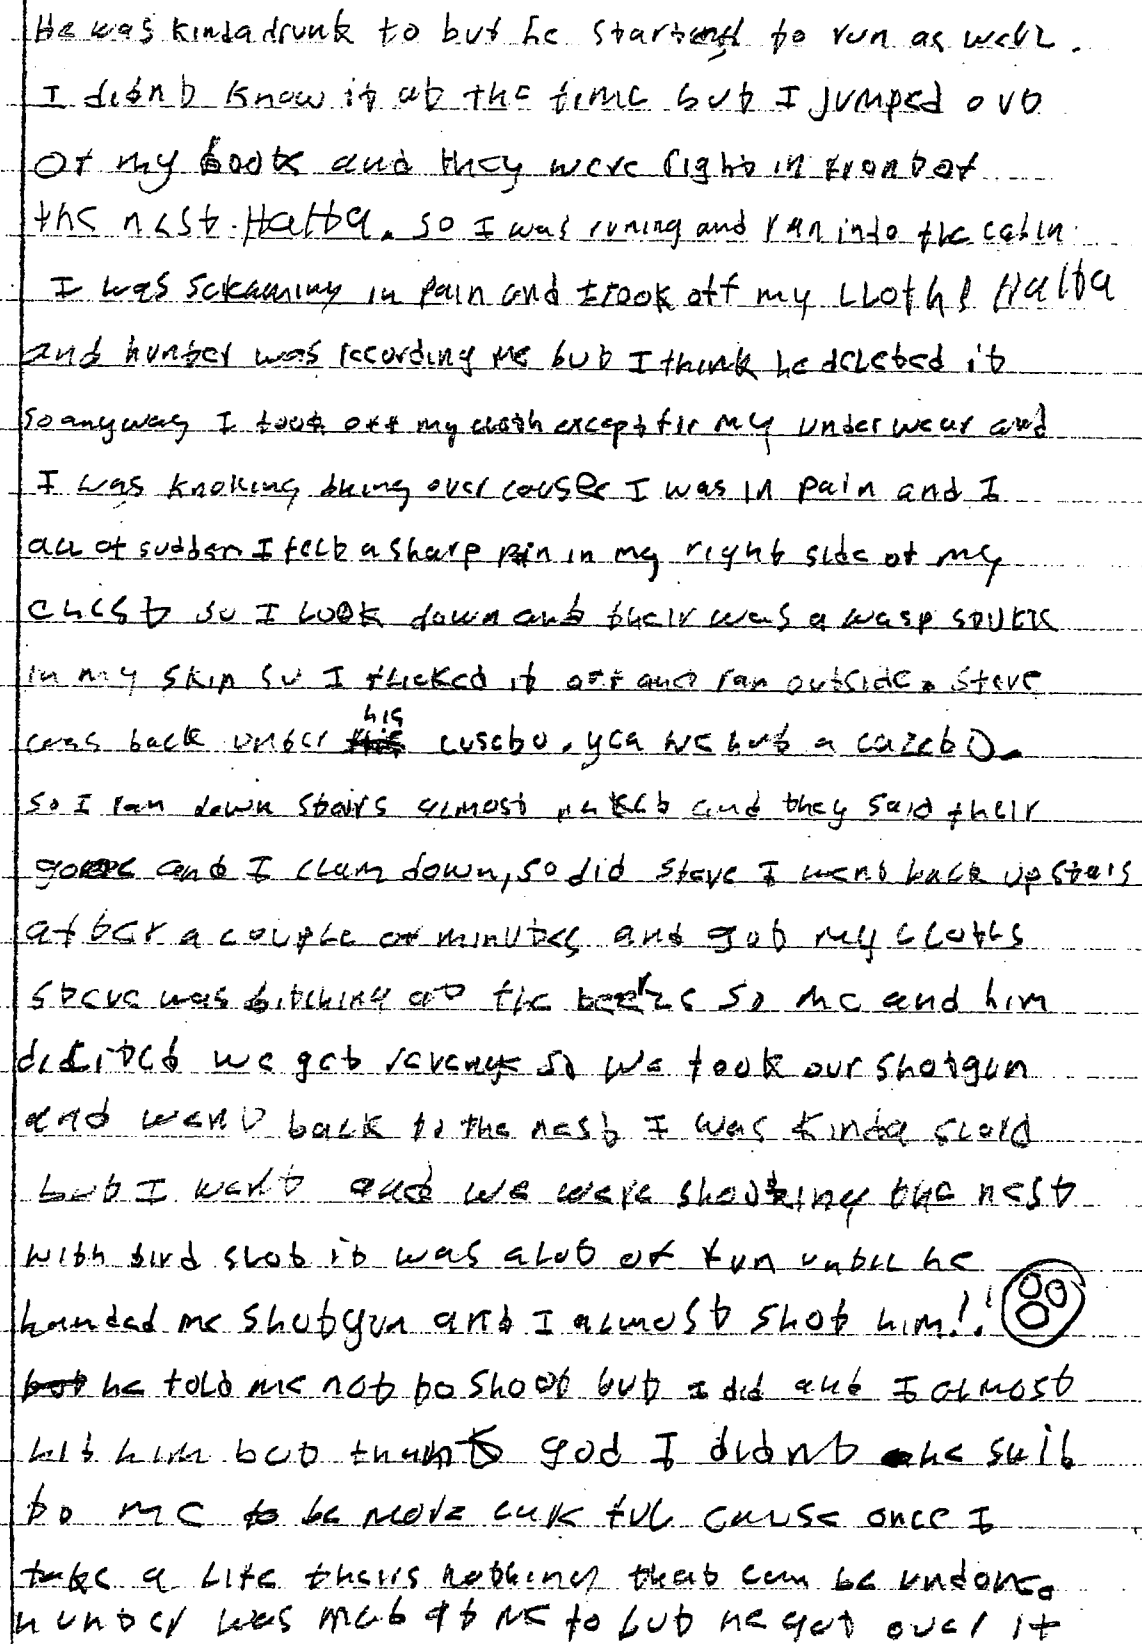 He was kinda drunk to but he started to run as well.
I didnt know it at the time but I jumped out
of my boots and they were right in front of
the nest. Halta. so I was runing and ran into the cabin
I was sckaming in pain and took off my cloths Halta
and hunter was recording me but I think he deleted it
so anyway I took off my cloth except fir my under wear and
I was knoking thing over couse I was in pain and I
all of sudden I felt a sharp pin in my right side of my
chest so I look down and their was a wasp stuck
in my skin so I flicked it off and ran outside. Steve
was back under his cusebo. yea we hut a cazebo.
so I ran down stairs almost naked and they said their
gone and I clam down, so did steve I went back upstairs
after a couple of minutes and got my cloths
steve was bitching at the so me and him
dicited we get revenge so we took our shotgun
and went back to the nest I was kinda scard
but I want and we were shooting the nest
with bird shot it was alot of fun until he
handed me shotgun and I almost shot him!!
he told me not to shoot but I did and I almost
hit him but thank god I didnt he said
to me to be more ful cause once I
take a life theirs nothing that can be undone.
hunter was mad at me to but he got over it